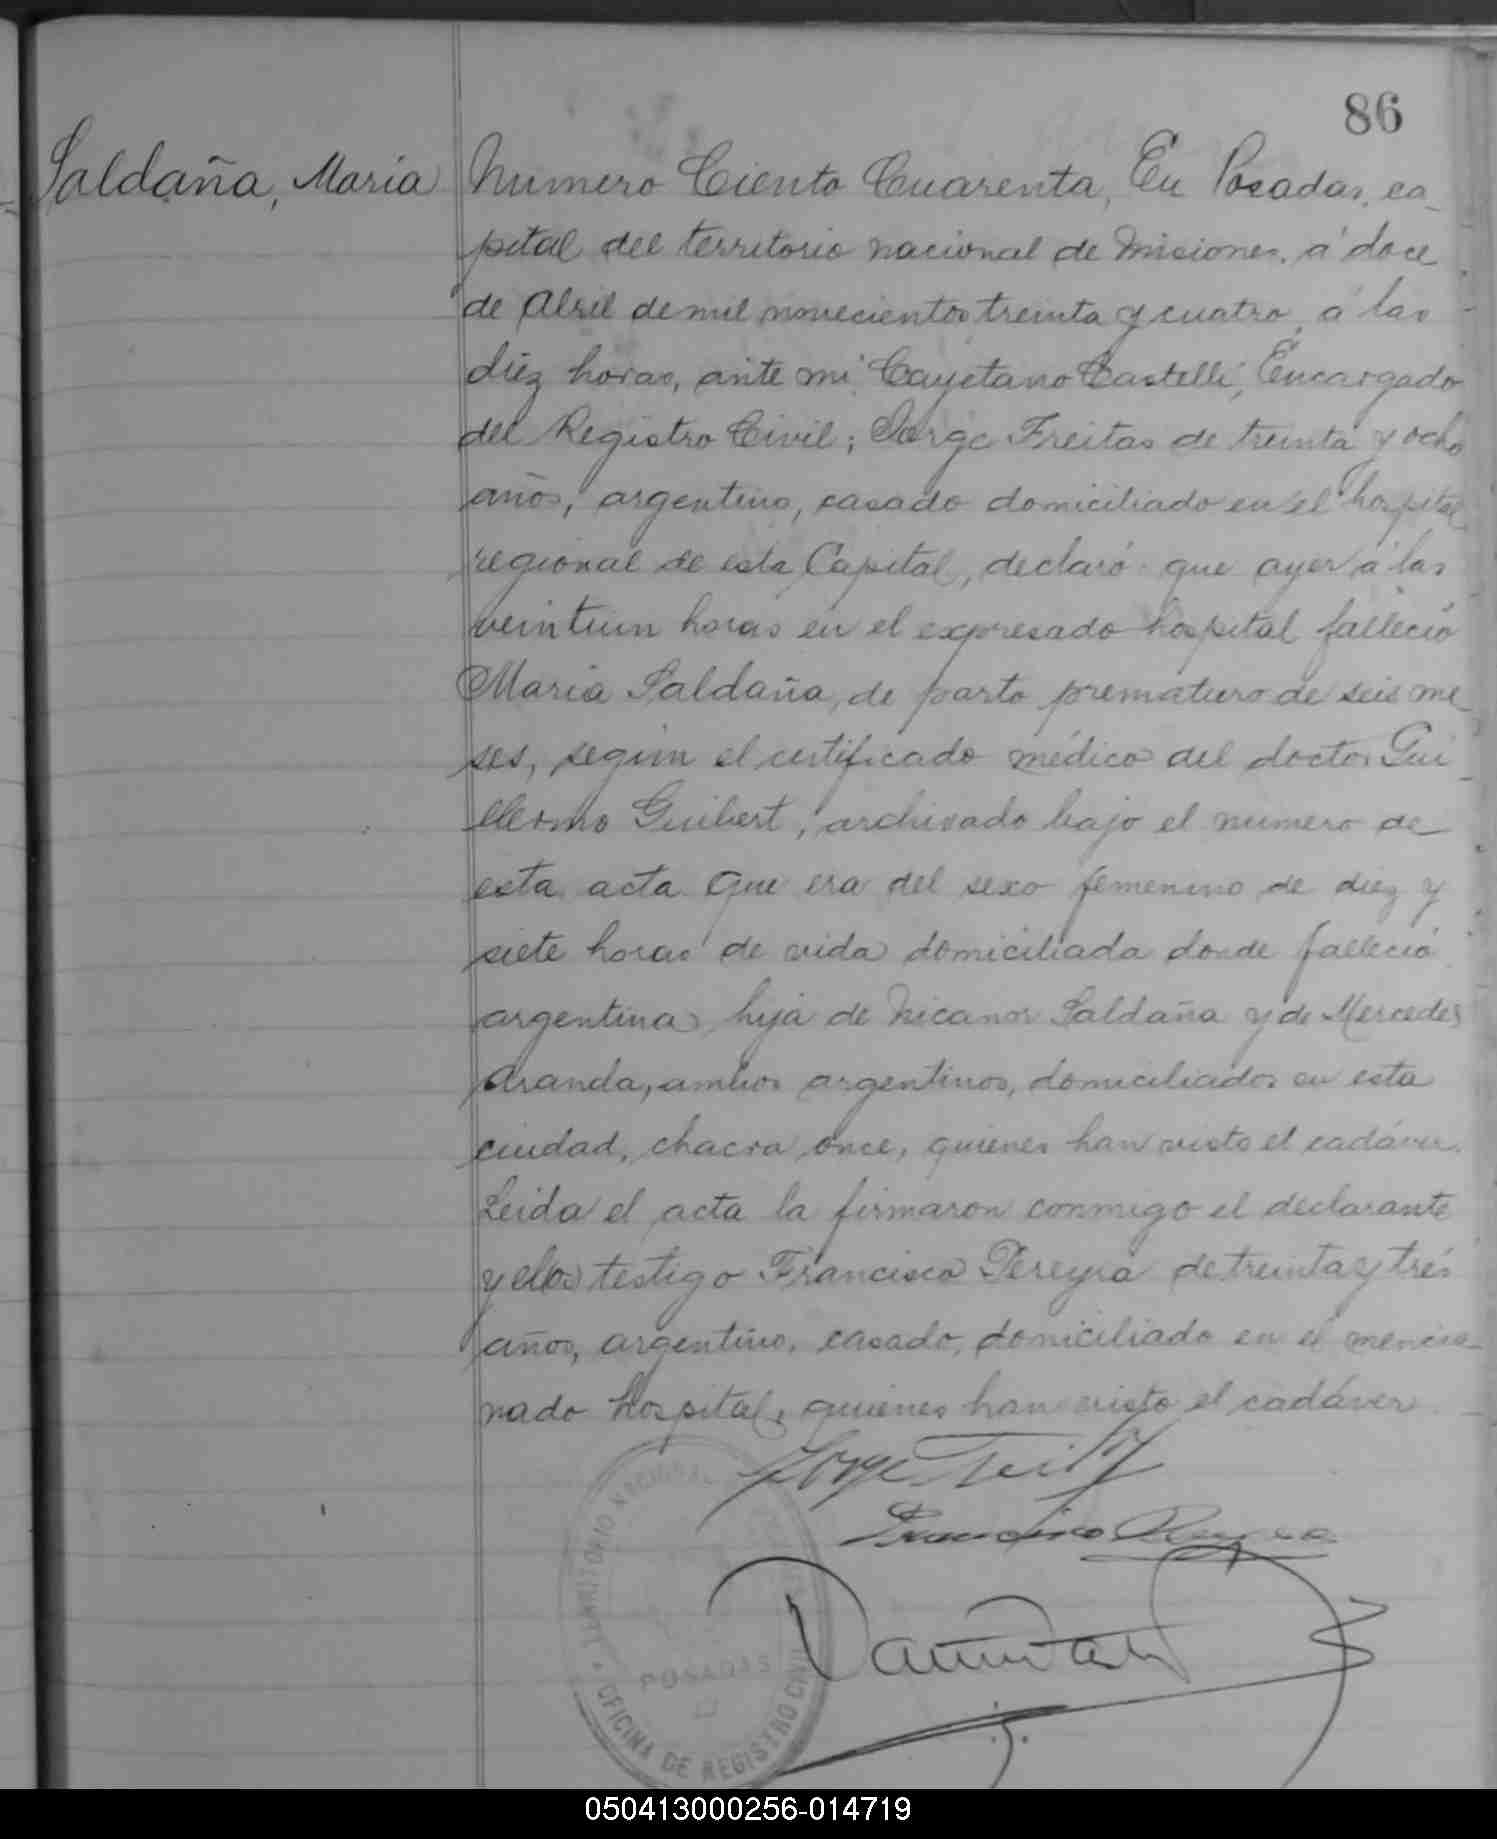 86
Saldaña, Maria
Numero Ciento Cuarenta, En Posadas, ca-
pital del territorio nacional de Misiones, á doce
de Abril de mil novecientos treinta y cuatro, á las
diez horas, ante mi Cayetano Castelli, Encargado
del Registro Civil; Jorge Freitas de treinta y ocho
años, argentino, casado domiciliado en el hospital
regional de esta Capital, declaró que ayer á las
veintiun horas en el expresado hospital falleció
Maria Saldaña, de parto prematuro de seis me-
ses, segun el certificado médico del doctor Gui-
llermo Guibert, archivado bajo el numero de
esta acta que era del sexo femenino de diez y
siete horas de vida domiciliada donde falleció
argentina, hija de Nicanor Saldaña y de Mercedes
Aranda, ambos argentinos, domiciliados en esta
ciudad, chacra once, quienes han visto el cadáver.
Leida el acta la firmaron conmigo el declarante
y el testigo Francisco Pereyra de treinta y tres
años, argentino, casado, domiciliado en el mencio-
nado hospital, quienes han visto el cadáver.
Jorge Freitas
Francisco Pereyra
TERRITORIO NACIONAL
POSADAS
OFICINA DE REGISTRO CIVIL
050413000256-014719